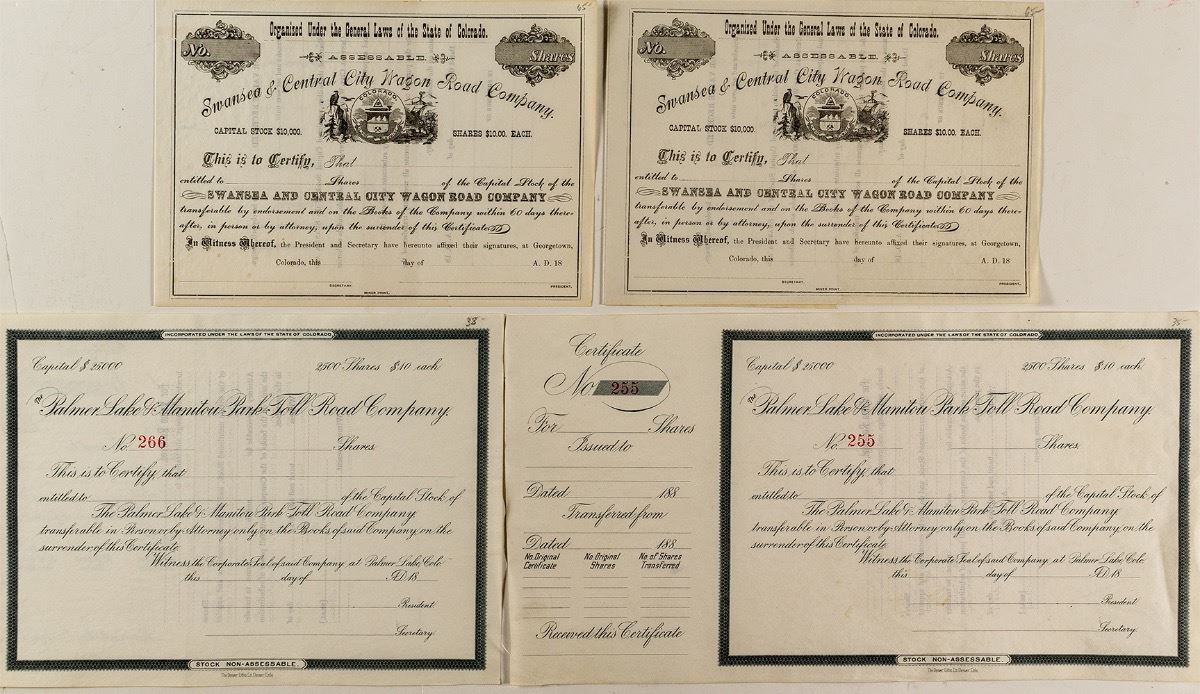 65-
Organised Under the General Laws of the State of Colorado.
No.
ASSESSABLE.
Shares
Swansea & Central City Wagon Road Company.
COLORADO
CAPITAL STOCK $10,000.
SHARES $10.00. EACH.
This is to Certify, That
entitled to Shares of the Capital Stock of the
SWANSEA AND CENTRAL CITY WAGON ROAD COMPANY
transferable by endorsement and on the Books of the Company within 60 days there-
after, in person or by attorney, upon the surrender of this Certificate
In Witness Whereof, the President and Secretary have hereunto affixed their signatures, at Georgetown,
Colorado, this day of A. D. 18
SECRETARY.
PRESIDENT.
MINER PRINT.
65-
Organised Under the General Laws of the State of Colorado.
No.
ASSESSABLE.
Shares
Swansea & Central City Wagon Road Company.
COLORADO
CAPITAL STOCK $10,000.
SHARES $10.00. EACH.
This is to Certify, That
entitled to Shares of the Capital Stock of the
SWANSEA AND CENTRAL CITY WAGON ROAD COMPANY
transferable by endorsement and on the Books of the Company within 60 days there-
after, in person or by attorney, upon the surrender of this Certificate
In Witness Whereof, the President and Secretary have hereunto affixed their signatures, at Georgetown,
Colorado, this day of A. D. 18
SECRETARY.
PRESIDENT.
MINER PRINT.
38-
INCORPORATED UNDER THE LAWS OF THE STATE OF COLORADO.
Capital $25000 2500 Shares $10 each
The Palmer Lake & Manitou Park Toll Road Company.
No. 266 Shares.
This is to Certify, that
entitled to of the Capital Stock of
The Palmer Lake & Manitou Park Toll Road Company
transferable in Person or by Attorney only on the Books of said Company, on the
surrender of this Certificate.
Witness the Corporate Seal of said Company at Palmer Lake, Colo.
this day of A.D. 18
President.
Secretary.
STOCK NON-ASSESSABLE.
The Denver Litho. Co. Denver, Colo.
Certificate
No 255
For Shares
Issued to
Dated 188
Transferred from
Dated 188
No. Original Certificate No. Original Shares No of Shares Transferred
Received this Certificate
INCORPORATED UNDER THE LAWS OF THE STATE OF COLORADO.
Capital $25000 2500 Shares $10 each
The Palmer Lake & Manitou Park Toll Road Company.
No. 255 Shares.
This is to Certify, that
entitled to of the Capital Stock of
The Palmer Lake & Manitou Park Toll Road Company
transferable in Person or by Attorney only on the Books of said Company, on the
surrender of this Certificate.
Witness the Corporate Seal of said Company at Palmer Lake, Colo.
this day of A.D. 18
President.
Secretary.
STOCK NON-ASSESSABLE.
The Denver Litho. Co. Denver, Colo.